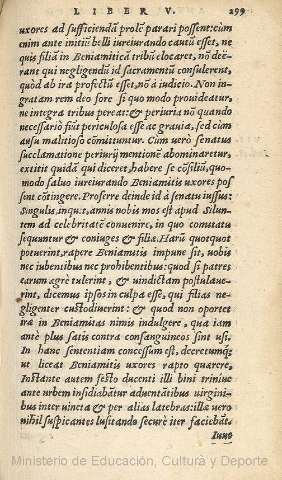 LIBER V. 299
uxores ad sufficiendā prolē parari possent: cùm
enim ante initiū belli iureiurando cautū esset, ne
quis filiā in Beniamiticā tribū elocaret, nō deē-
rant qui negligendū id sacramentū consulerent,
quòd ab ira profectū esset, nō à iudicio. Non in-
gratam rem deo fore si quo modo prouideatur,
ne integra tribus pereat: & periuria nō quando
necessariò fiūt periculosa esse ac grauia, sed cùm
ausu malitioso cōmittuntur. Cùm verò senatus
succlamatione periurij mentionē abominaretur,
extitit quidā qui diceret, habere se cōsiliū, quo-
modo saluo iureiurando Beniamitis uxores pos
sent cōtingere. Proferre deinde id à senatu iussus:
Singulis, inquit, annis nobis mos est apud Silun-
tem ad celebritatē conuenire, in quo comitatu
sequuntur & coniuges & filiæ. Harū quotquot
potuerint, rapere Beniamitis impune sit, nobis
nec iubentibus nec prohibentibus: quod si patres
earum ægrè tulerint, & uindictam postulaue-
rint, dicemus ipsos in culpa esse, qui filias ne-
gligenter custodiuerint: & quod non oportet
ira in Beniamitas nimis indulgere, qua iam
antè plus satis contra consanguineos sint usi.
In hanc sententiam concessum est, decretumq;
ut liceat Beniamitis uxores rapto quærere.
Instante autem festo ducenti illi bini triniue
ante urbem insidiabātur aduentātibus uirginibus
inter uineta & per alias latebras: illæ uero
nihil suspicantes lusitando securè iter faciebāt.
Iuue
Ministerio de Educación, Cultura y Deporte